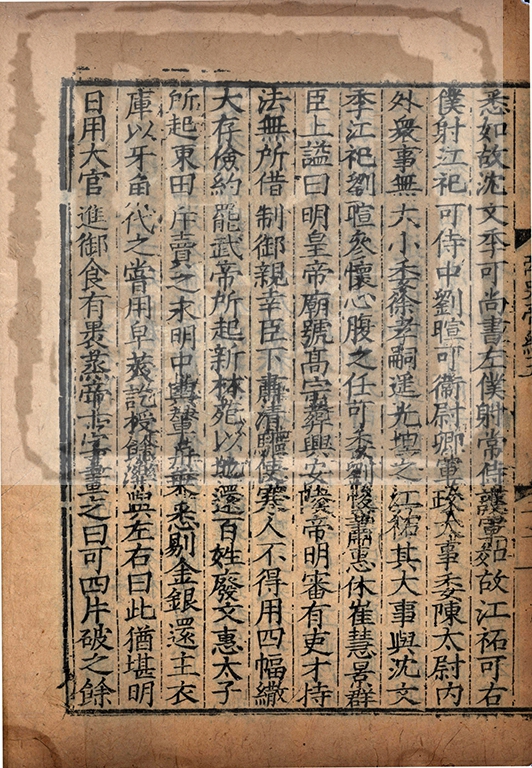 悉如故沈文季可尚書左僕射常侍護軍如故江祏可右
僕射江祀可侍中劉暄可衞尉卿軍政大事委陳太尉内
外衆事無大小委徐孝嗣遥光坦之江祏其大事與沈文
季江祀劉暄参懷心腹之任可委劉悛蕭惠休崔慧景群
臣上謚曰明皇帝廟號髙宗葬興安陵帝明審有吏才持
法無所借制御親幸臣下肅清驅使寒人不得用四幅繖
大存儉約罷武帝所起新林苑以地還百姓廢文惠太子
所起東田斥賣之永明中輿輦舟乘悉剔金銀還主衣
庫以牙角代之嘗用皁莢訖授餘濼與左右曰此猶堪明
日用大官進御食有裹蒸帝十字畫之曰可四片破之餘